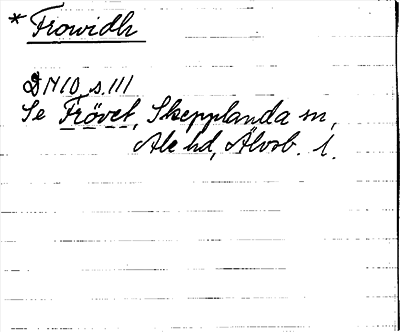 * Frowidh
DN 10, s. 111
Se Frövet, Skepplanda sn,
Ale hd, Älvsb. l.